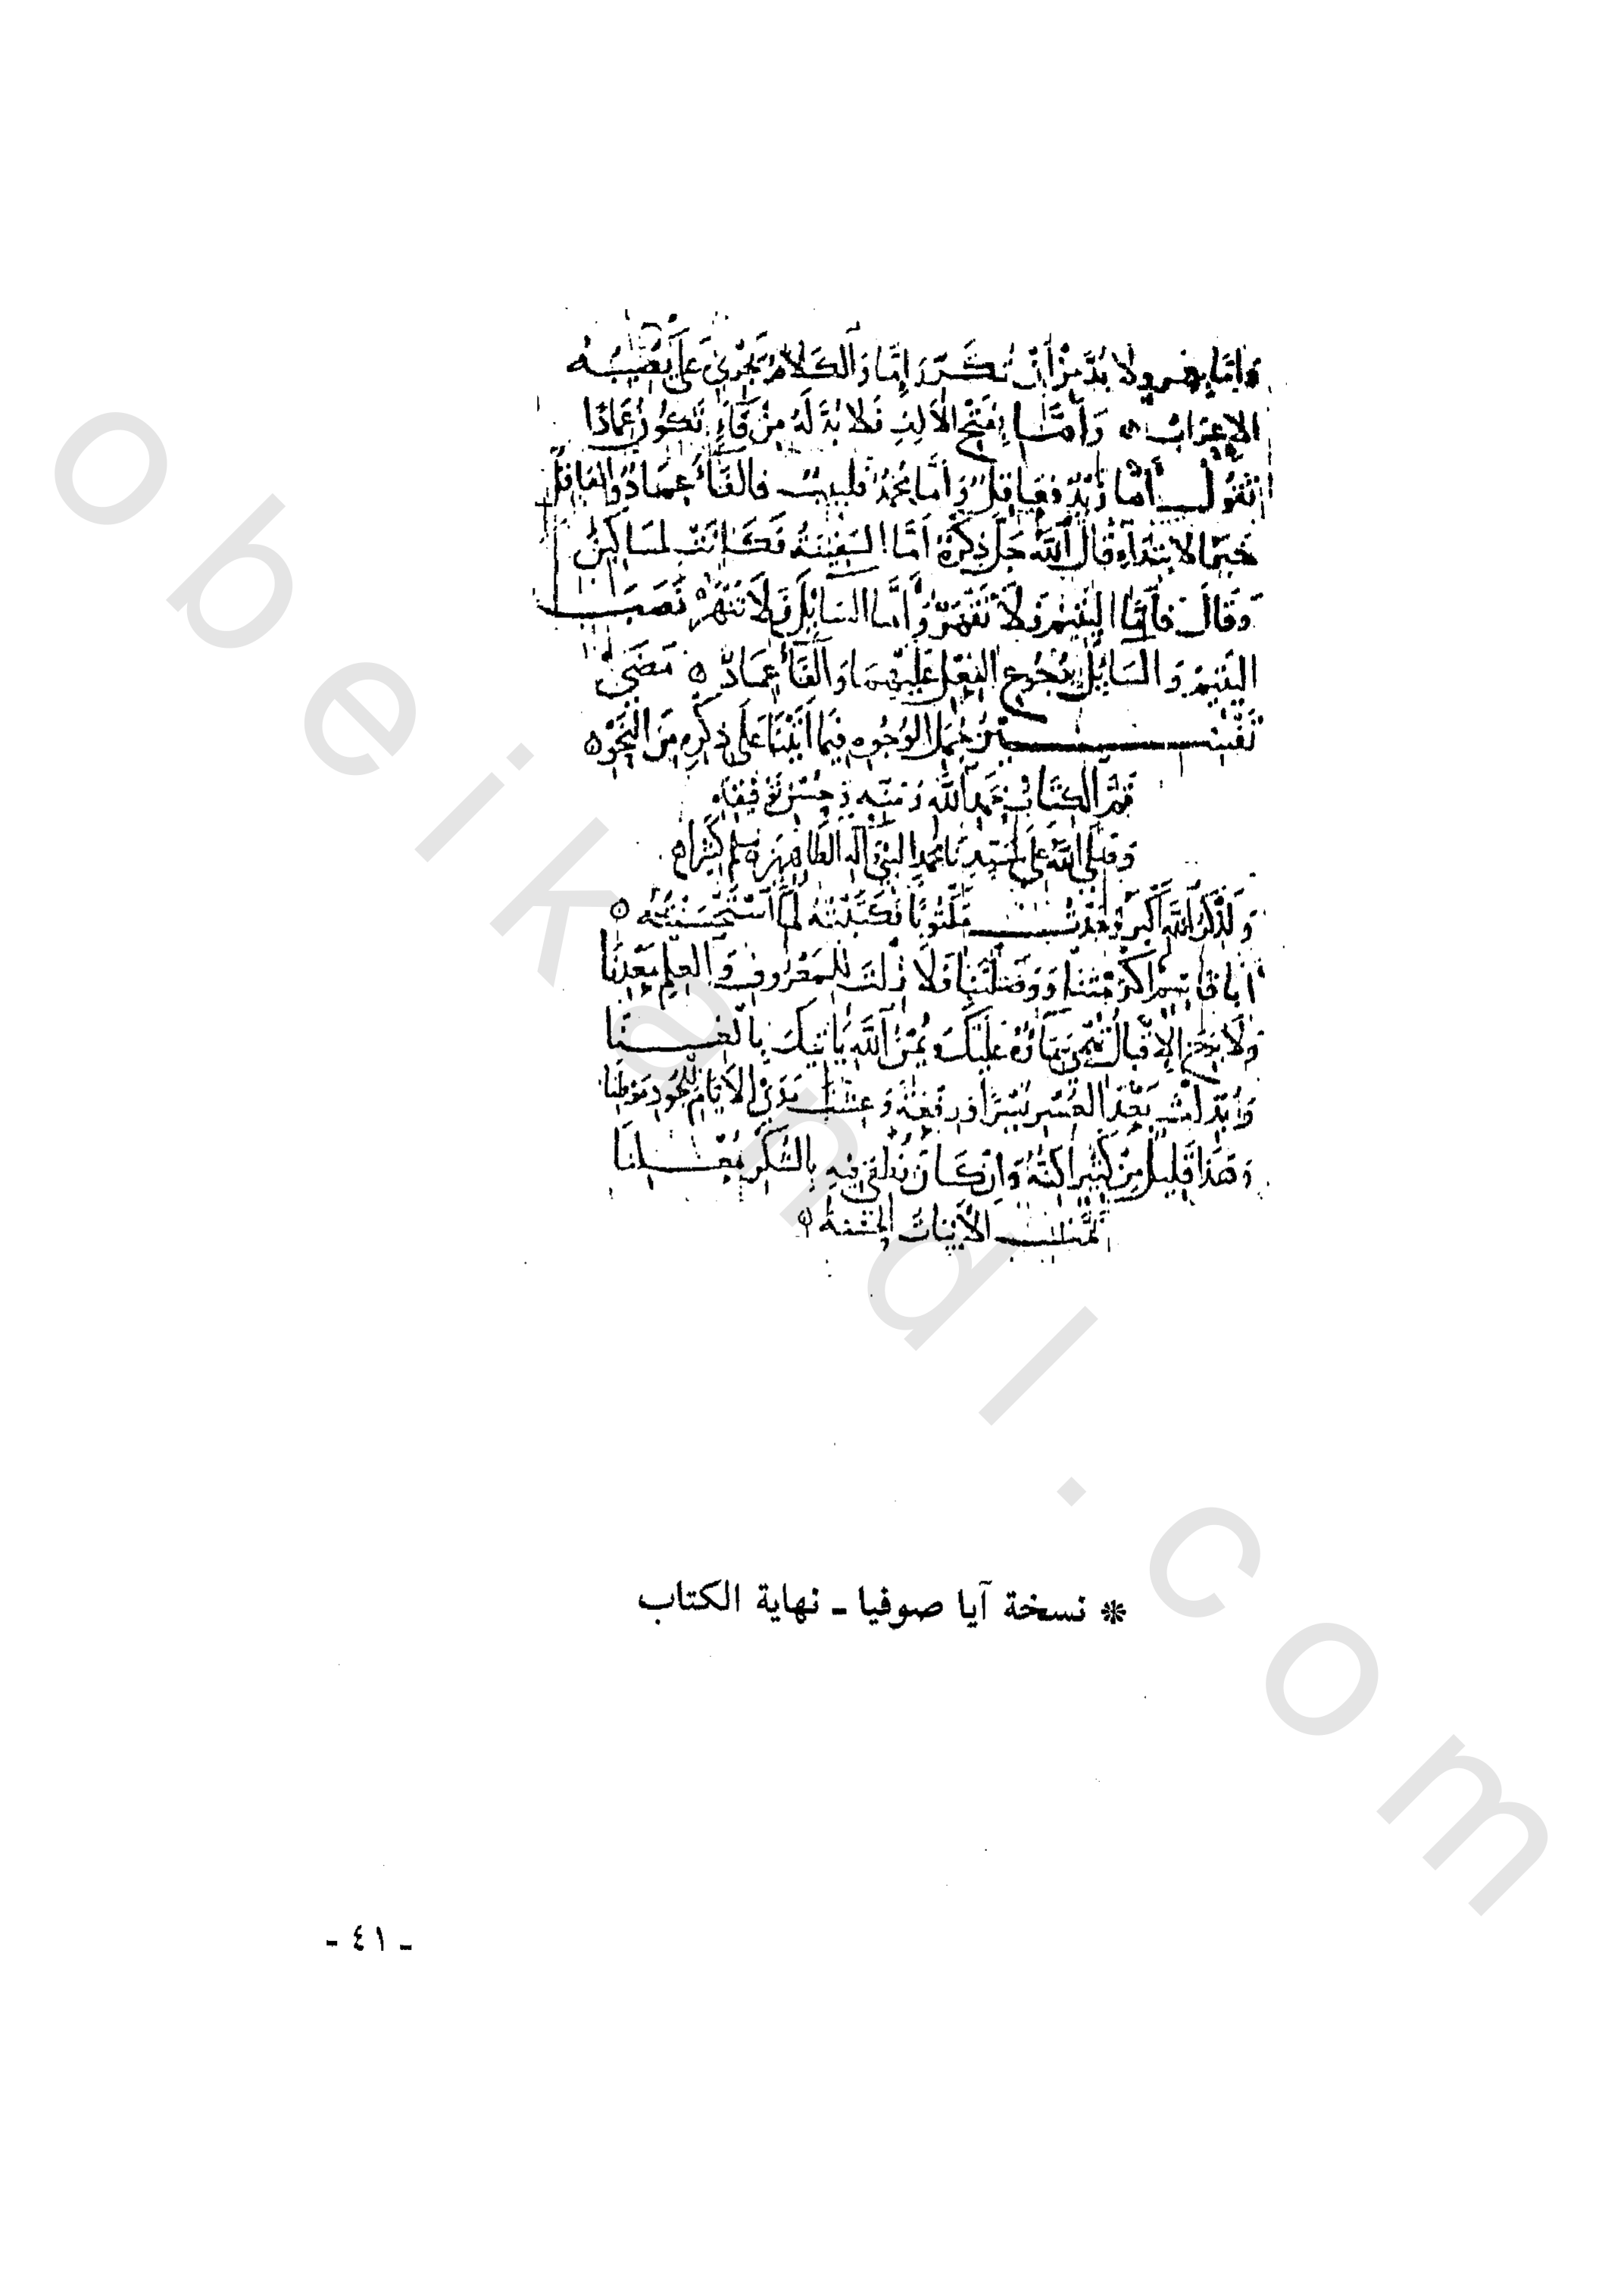 ولا بد من أن تكرر إما والكلام يجري على
الإعراب وأما بفتح الألف فلا بد له من فاء تكون عمادا
تقول أما زيد فعاقل وأما محمد فلبيب فالفاء عماد والعاقل
خبر الابتداء قال الله جل ذكره أما السفينة فكانت لمساكين
وقال فأما اليتيم فلا تقهر وأما السائل فلا تنهر نصب
اليتيم والسائل الفعل عليهما والفاء عماد مضى
تفسير جمل الوجوه فيما أتينا على ذكره من النحو
تم الكتاب بحمد الله ومنه وحسن توفيقه
وصلى الله على سيدنا محمد النبي وآله الطاهرين وسلم كثيرا
ولذكر الله أكبر وجدت مكتوبا فكتبته لما استحسنته
أبا قاسم أكرمتنا ووصلتنا فلا زلت للمعروف والعلم معدنا
ولا الإقبال عليك ومن الله يأتيك بالغنا
بعد العسر يسرا ورفعة وعشت مدى الأيام للجود موطنا
وهذا قليل من كثير وإن كان فيه بالشكر
تمت الأبيات الحسنة
* نسخة آيا صوفيا ـ نهاية الكتاب
ـ ٤١ ـ
obeikandl.com